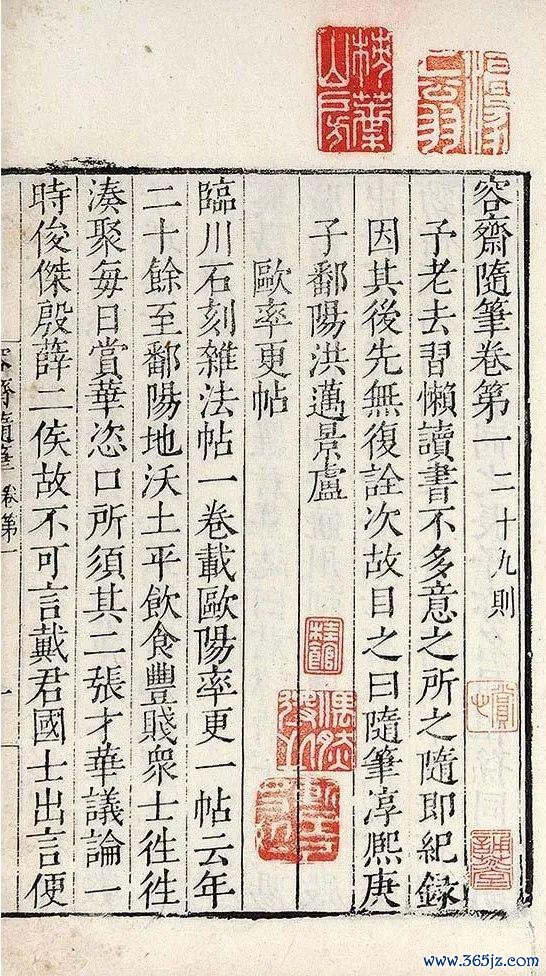 容齋隨筆卷第一 二十九則
予老去習懶讀書不多意之所之隨即紀錄
因其後先無復詮次故目之曰隨筆淳熙庚
子鄱陽洪邁景盧
歐率更帖
臨川石刻雜法帖一卷載歐陽率更一帖云年
二十餘至鄱陽地沃土平飲食豐賤衆士徃徃
湊聚每日賞華恣口所須其二張才華議論一
時俊傑殷薛二侯故不可言戴君國士出言便
容齋隨筆 卷第一
一
www.365jz.com